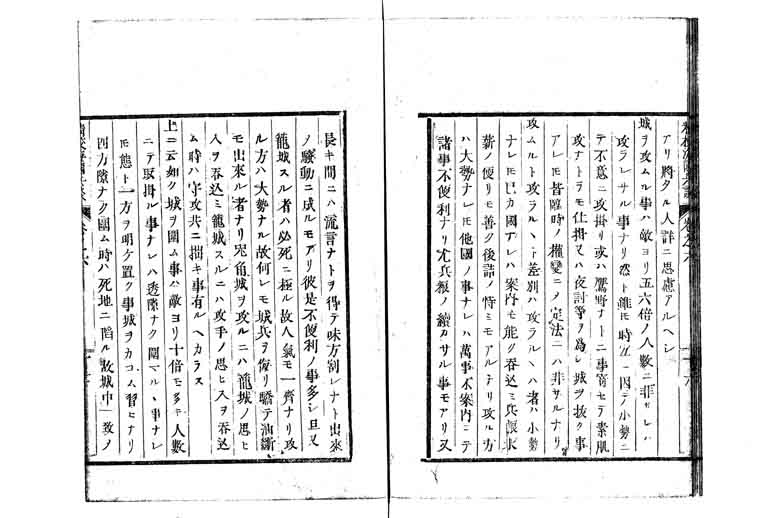 アリ將タル人詳ニ思慮アルヘシ
城ヲ攻ムル事ハ敵ヨリ五六倍ノ人數ニ非サレハ
攻ラレサル事ナリ然ト雖モ時宜ニ因テ小勢ニ
テ不意ニ攻掛リ或ハ鷹野ナトニ事寄セテ素肌
攻ナトヲモ仕掛又ハ夜討等ヲ爲シ城ヲ抜ク事
アレモ皆臨時ノ權變ニノ定法ニハ非サルナリ
攻ムルト攻ラルヽト差別ハ攻ラルヽハ者ハ小勢
ナレモ己カ國ナレハ案内モ能ク呑込ミ兵粮水
薪ノ便リモ善ク後詰ノ恃ミモアルナリ攻ル方
ハ大勢ナレモ他國ノ事ナレハ萬事不案内ニテ
諸事不便利ナリ尤兵粮ノ續カサル事モアリ又
長キ間ニハ流言ナトヲ得テ味方割レナト出來
ノ騒動ニ成ルモアリ彼是不便利ノ事多シ且又
籠城スル者ハ必死ニ極ル故人氣モ一齊ナリ攻
ル方ハ大勢ナル故何レモ城兵ヲ侮リ驕テ油斷
モ出來ル者ナリ兎角城ヲ攻ルニハ籠城ノ思ヒ
入ヲ呑込ミ籠城スルニハ攻手ノ思ヒ入ヲ呑込
ム時ハ守攻共ニ拙キ事有ルヘカラス
上ニ云如ク城ヲ圍ム事ハ敵ヨリ十倍モ多キ人數
ニテ取掛ル事ナレハ透際ナク圍マルヽ事ナレ
モ態ト一方ヲ明ケ置ク事城ヲカコム習ヒナリ
四方隙ナク圍ム時ハ死地ニ陷ル故城中一致ノ